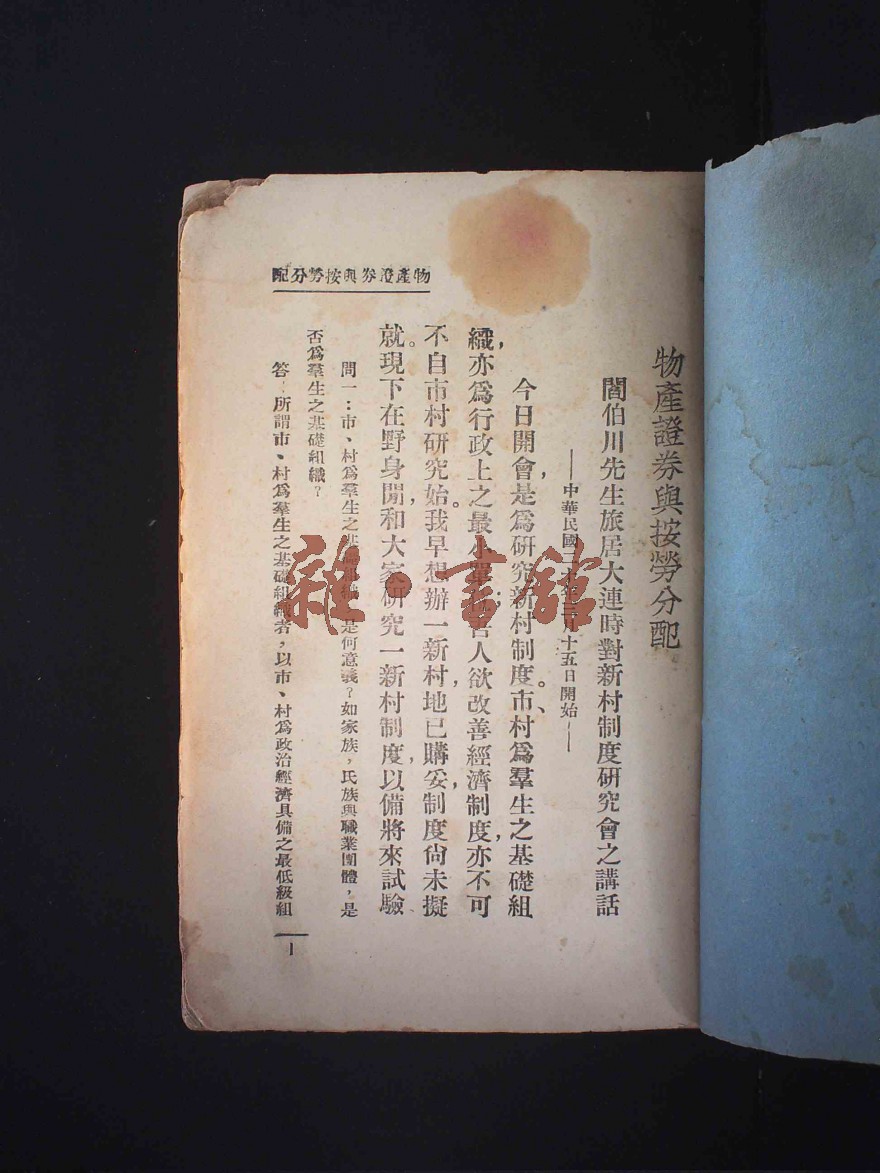 物產證券與按勞分配
閻伯川先生旅居大連時對新村制度研究會之講話
——中華民國二十年三月十五日開始——
今日開會,是爲研究新村制度。市、村爲羣生之基礎組
織,亦爲行政上之最小單位,吾人欲改善經濟制度,亦不可
不自市村研究始。我早想辦一新村,地已購妥,制度尙未擬
就。現下在野身閒,和大家研究一新村制度,以備將來試驗
問一:市、村爲羣生之基礎組織,是何意義?如家族,氏族與職業團體,是
否爲羣生之基礎組織?
答:所謂市、村爲羣生之基礎組織者,以市、村爲政治經濟具備之最低級組
物產證券與按勞分配
1
雜·書館